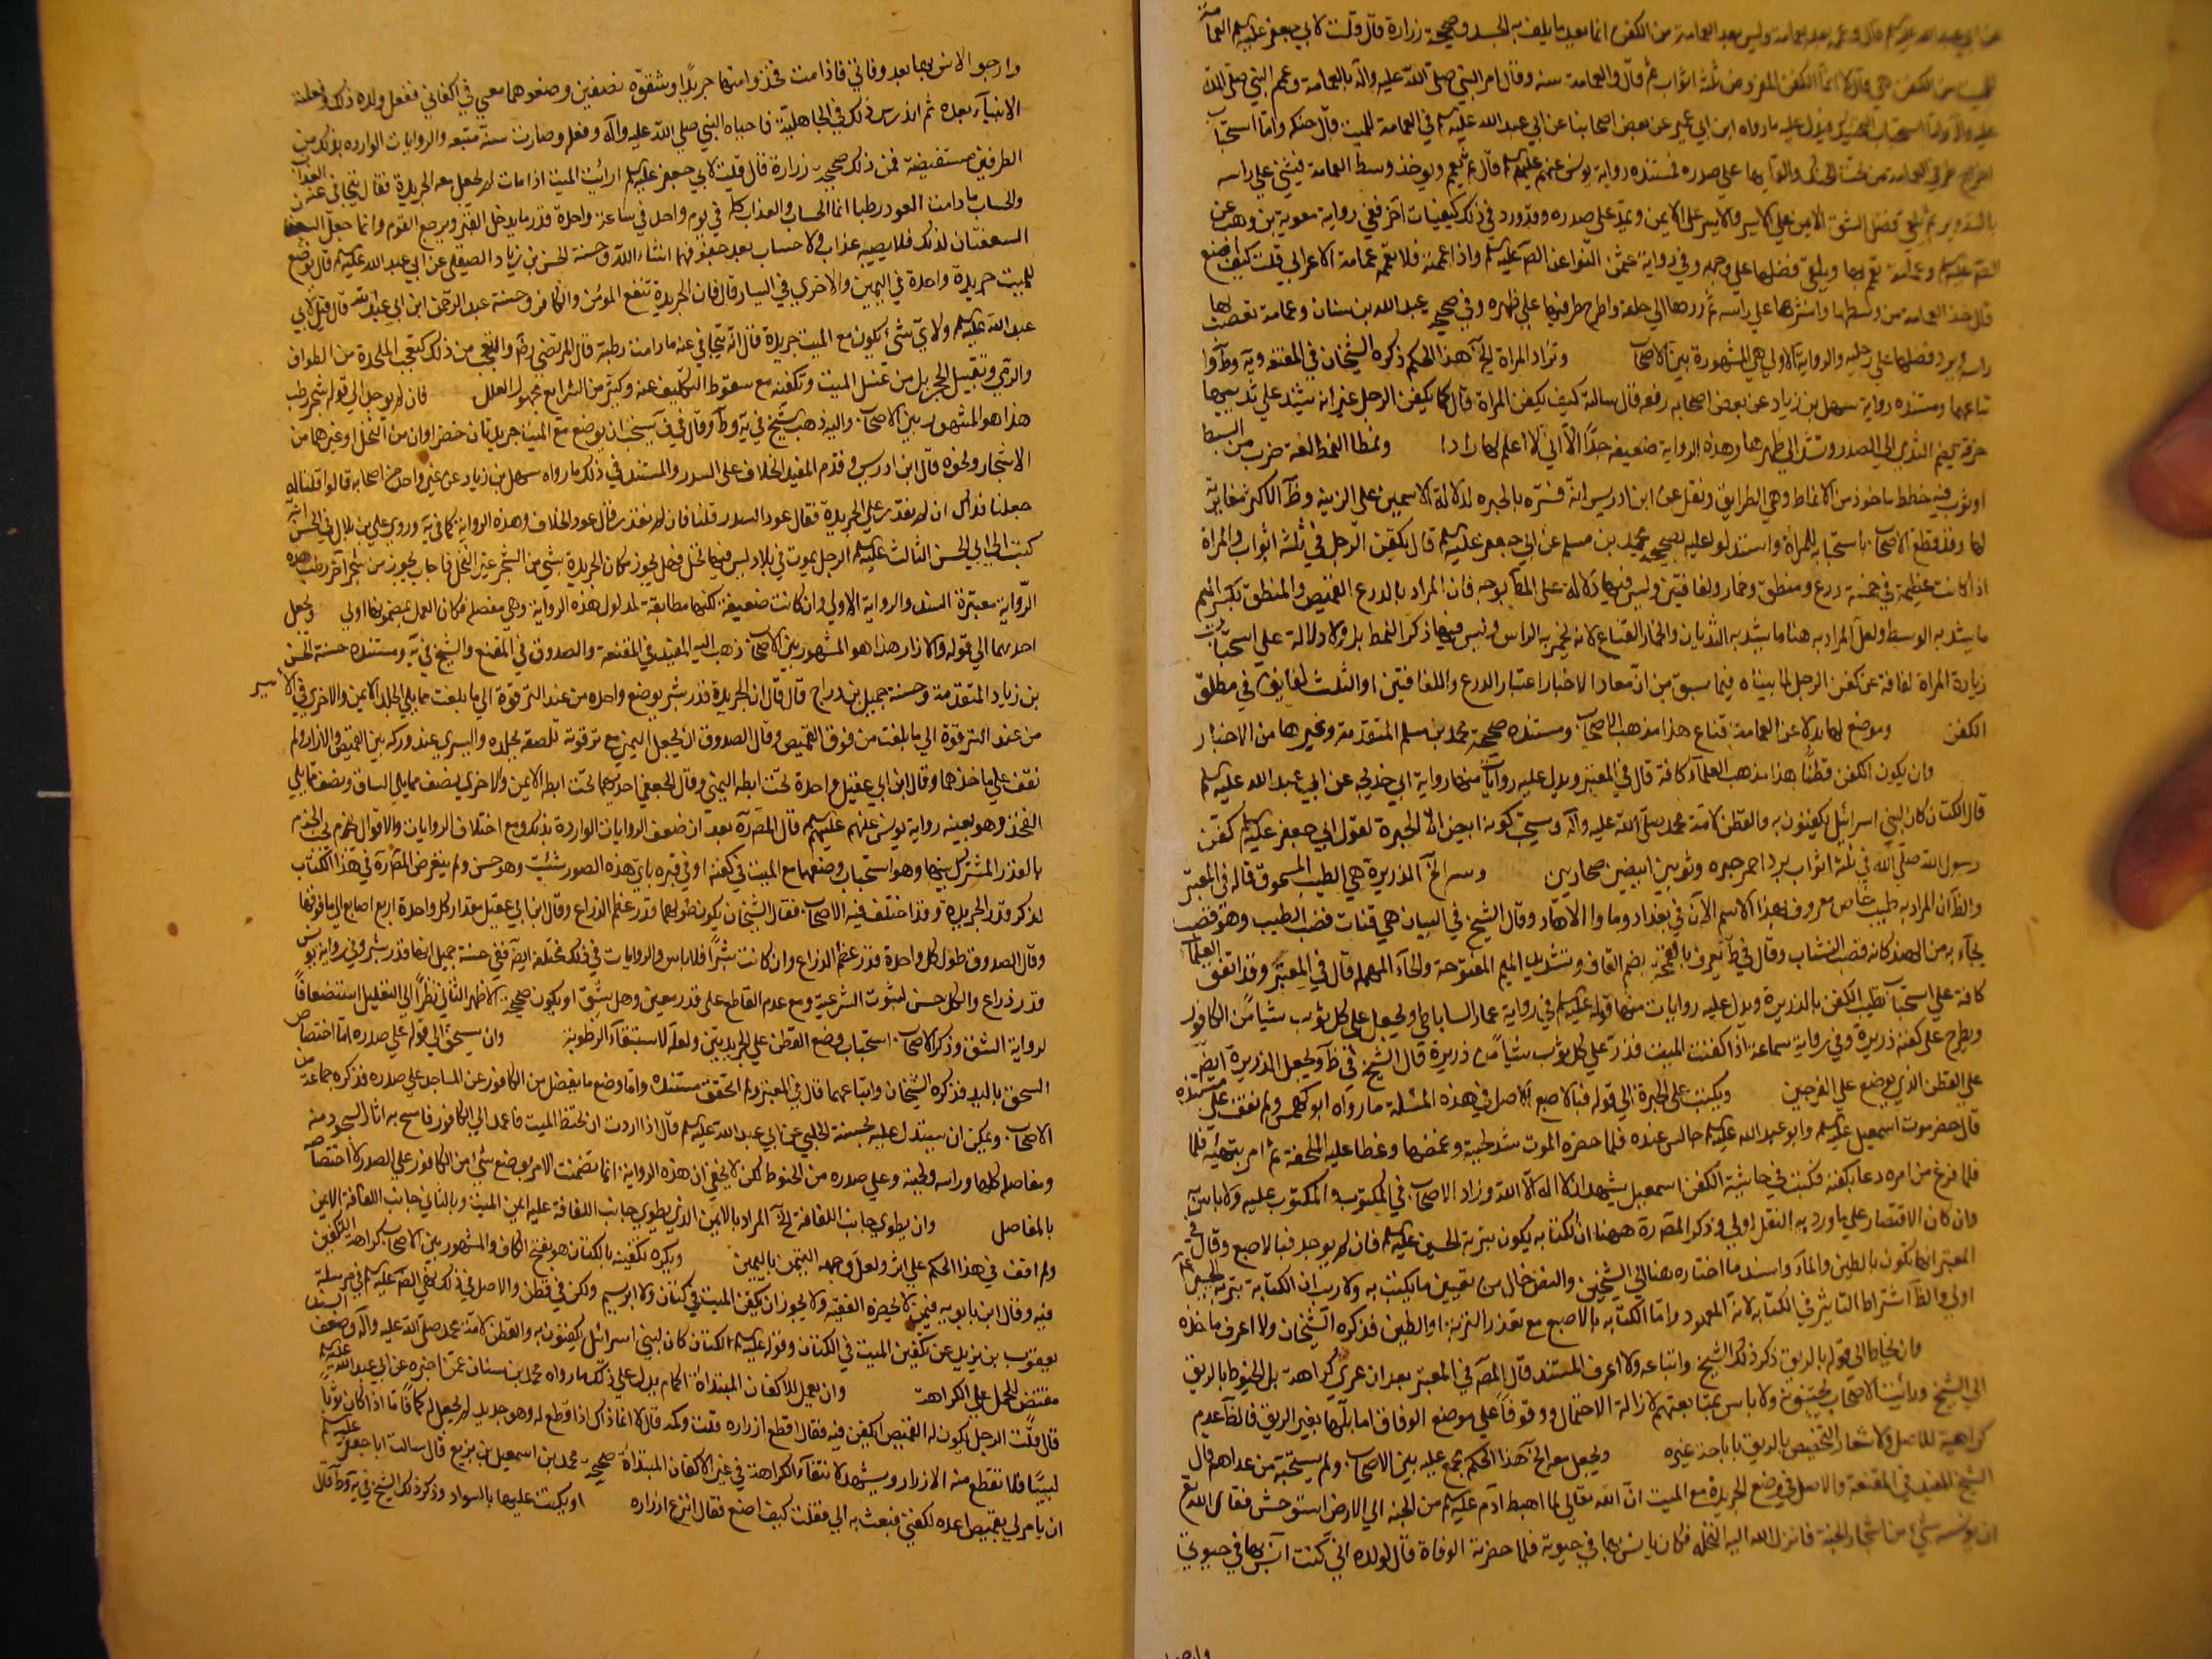 عن ابي عبد الله عليه السلم قال وعمه بعد بعمامة وليس بعد العمامة من الكفن انما يعد ما يلف به الجسد وصحيحة زرارة قال قلت لابي جعفر عليه السلم العمامة
للميت من الكفن هي قال لا انما الكفن المفروض ثلثة اثواب ثم قال والعمامة سنة وقال امر النبي صلى الله عليه واله بالعمامة وعمم النبي صلى الله
عليه واله واما استحباب التحنيك فيدل عليه ما رواه ابن ابي عمير عن بعض اصحابنا عن ابي عبد الله عليه السلم في العمامة للميت قال حنكه واما استحباب
اخراج طرفي العمامة من تحت الحنك والقآيهما على صدره فمستنده رواية يونس عنهم عليهم السلم قال ثم يعمم ويوخذ وسط العمامة فيثنى على راسه
بالتدوير ثم يلقى فضل الشق الايمن على الايسر والايسر على الايمن ويمد على صدره وقد ورد في ذلك كيفيات آخر ففي رواية معوية بن وهب عن
الصم عليه السلم وعمامة يعمم بها ويلقى فضلها على وجهه وفي رواية عثمن النوا عن الصم عليه السلم واذا عممته فلا تعممه عمامة الاعرابي قلت كيف اصنع
قال خذ العمامة من وسطها وانشرها على راسه ثم ردها الى خلفه واطرح طرفيها على ظهره وفي صحيحة عبد الله بن سنان وعمامة تعصب بها
راسه ويرد فضلها على رجليه والرواية الاولى هي المشهورة بين الاصحاب وتزاد المراة الخ هذا الحكم ذكره الشيخان في المقنعة ويه وط وا
تباعهما ومستنده رواية سهل بن زياد عن بعض اصحابه رفعه قال سالته كيف يكفن المراة قال كما يكفن الرجل غير انه يشد على ثدييها
خرقة يضم الثدي الى الصدر وتشد الى ظهرها وهذه الرواية ضعيفه جدا الا اني لا اعلم لها رادا ونمطا النمط لغة ضرب من البسط
او ثوب فيه خطط ماخوذ من الانماط وهي الطرايق ونقل عن ابن ادريس انه فسره بالحبره لدلالة الاسمين على الزينه وظ الاكثر مغايرته
لها وقد قطع الاصحاب باستحبابه للمراة واستدلوا عليه بصحيحة محمد بن مسلم عن ابي جعفر عليه السلم قال يكفن الرجل في ثلثة اثواب والمراة
اذا كانت عظيمة في خمسة درع ومنطق وخمار ولفافتين وليس فيها دلالة على المط بوجه فان المراد بالدرع القميص والمنطق بكسر الميم
ما يشد به الوسط ولعل المراد به هنا ما يشد به الثديان والخمار القناع لانه يخمر به الراس وليس فيها ذكر النمط بل ولا دلالة على استحباب
زيادة المراة لفافة عن كفن الرجل لما بيناه فيما سبق من ان مفاد الاخبار اعتبار الدرع واللفافتين او الثلث لفايف في مطلق
الكفن وموضع لها بدلا عن العمامة قناع هذا مذهب الاصحاب ومستنده صحيحة محمد بن مسلم المتقدمة وغيرها من الاخبار
وان يكون الكفن قطنا هذا مذهب العلمآء كافة قاله في المعتبر ويدل عليه روايات منها رواية ابي خديجه عن ابي عبد الله عليه السلم
قال الكتان كان لبني اسرائيل يكفنون به والقطن لامة محمد صلى الله عليه واله ويستحب كونه ابيض الا الحبرة لقول ابي جعفر عليه السلم كفن
رسول الله صلى الله في ثلثة اثواب برد احمر حبره وثوبين ابيضين صحاريين وسر الخ الذريرة هي الطيب المسحوق قاله في المعتبر
والظ ان المراد به طيب خاص معروف بهذا الاسم الآن في بغداد وما والاها وقال الشيخ في البيان هي فتات قصب الطيب وهو قصب
يجآء به من الهند كانه قصب النشاب وقال في ط يعرف بالقمحة بضم القاف وتشديد الميم المفتوحة والحآء المهمله قال في المعتبر وقد اتفق العلمآ
كافة على استحباب تطيب الكفن بالذريرة ويدل عليه روايات منها قوله عليه السلم في رواية عمار الساباطي ويجعل على كل ثوب شيئا من الكافور
ويطرح على كفنه ذريرة وفي رواية سماعة اذا كفنت الميت فذر على كل ثوب شيئا من ذريرة قال الشيخ في ط ويجعل الذريرة ايضا
على القطن الذي يوضع على الفرجين ويكتب على الحبرة الى قوله فبالاصبع الاصل في هذه المسئلة ما رواه ابو كهمس ولم نقف على مستنده
قال حضرموت اسمعيل عليه السلم وابو عبد الله عليه السلم جالس عنده فلما حضره الموت شد لحييه وغمضه وغطا عليه الملحفة ثم امر بتهيئه فلما
فلما فرغ من امره دعا بكفنه فكتب في حاشية الكفن اسمعيل يشهد ان لا اله الا الله وزاد الاصحاب في المكتوب والمكتوب عليه ولا باس به
وان كان الاقتصار على ما ورد به النقل اولى وذكر المص ره ههنا ان الكتابه يكون بتربة الحسين عليه السلم فان لم يوجد فبالاصبع وقال في
المعتبر انها تكون بالطين والمآء واسند ما اختاره هنا الى الشيخين والنص خال من تعيين ما يكتب به ولا ريب ان الكتابة بتربة الحسين ع
اولى والظ اشتراط التاثير في الكتابه لانه المعهود واما الكتابه بالاصبع مع تعذر التربة او الطين فذكره الشيخان ولا اعرف ماخذه
وان يخاط الى قوله بالريق ذكر ذلك الشيخ واتباعه ولا اعرف المستند قال المص في المعتبر بعد ان عزى كراهة بل الخيوط بالريق
الى الشيخ ورايت الاصحاب يجتنبونه ولا باس بمتابعتهم لازالة الاحتمال ووقوفا على موضع الوفاق اما بلها بغير الريق فالظ عدم
كراهية للاصل ولاشعار التخصيص بالريق باباحة غيره ويجعل معه الخ هذا الحكم مجمع عليه بين الاصحاب ولم يستحبه من عداهم قال
الشيخ المفيد في المقنعة والاصل في وضع الجريدة مع الميت ان الله تعالى لما اهبط آدم عليه السلم من الجنه الى الارض استوحش فسال الله تع
ان يونسه بشيء من اشجار الجنة فانزل الله اليه النخله فكان يانس بها في حيوته فلما حضرته الوفاة قال لولده اني كنت آنس بها في حيوتي
وارجو
وارجو الانس بها بعد وفاتي فاذا مت فخذوا منها جريدا وشقوه نصفين وضعوهما معي في اكفاني ففعل ولده ذلك وفعلته
الانبيآء بعده ثم اندرس ذلك في الجاهلية فاحياه النبي صلى الله عليه واله وفعله وصارت سنة متبعه والروايات الوارده بذلك من
الطرفين مستفيضة فمن ذلك صحيحة زرارة قال قلت لابي جعفر عليه السلم ارايت الميت اذا مات لم يجعل معه الجريدة فقال يتجافى عنه العذاب
والحساب ما دامت العود رطبا انما الحساب والعذاب كله في يوم واحد في ساعة واحدة قدر ما يدخل القبر ويرجع القوم وانما جعل
السعفتان لذلك فلا يصيبه عذاب ولا حساب بعد جفوفهما انشاء الله وحسنة الحسن بن زياد الصيقل عن ابي عبد الله عليه السلم قال توضع
للميت جريدة واحدة في اليمين والاخرى في اليسار قال فان الجريدة تنفع المومن والكافر وحسنة عبد الرحمن ابن ابي عبد الله قال قيل لابي
عبد الله عليه السلم ولاي شئ يكون مع الميت جريدة قال انه يتجافى عنه ما دامت رطبة قال المرتضى رض والتعجب من ذلك كتعجب الملحدة من الطواف
والرمي وتقبيل الحجر بل من غسل الميت وتكفينه مع سقوط التكليف عنه وكثير من الشرايع مجهولة العلل فان لم يوجد الى قوله شجر رطب
هذا هو المشهور بين الاصحاب واليه ذهب الشيخ في يه وط وقال في ف يستحب ان يوضع مع الميت جريدتان خضراوان من النخل او غيرها من
الاشجار ونحوه قال ابن ادريس وقدم المفيد الخلاف على السدر والمستند في ذلك ما رواه سهل بن زياد عن غير واحد من اصحابه قالوا قلنا له
جعلنا فداك ان لم نقدر على الجريدة فقال عود السدر قلنا فان لم نقدر قال عود الخلاف وهذه الرواية كما في يه وروى علي بن بلال في الحسن انه
كتب الى ابي الحسن الثالث عليه السلم الرجل يموت في بلاد ليس فيها نخل فهل يجوز مكان الجريدة شئ من الشجر غير النخل فاجاب يجوز من شجر آخر رطب وهذه
الرواية معتبرة السند والرواية الاولى وان كانت ضعيفة لكنها مطابقة لمدلول هذه الرواية وهي مفصلة فكان العمل بمضمونها اولى ويجعل
احدهما الى قوله والازار هذا هو المشهور بين الاصحاب ذهب اليه المفيد في المقنعة والصدوق في المقنع والشيخ في يه ومستنده حسنة الحسن
بن زياد المتقدمة وحسنة جميل بن دراج قال قال ان الجريدة قدر شبر يوضع واحده من عند الترقوة الى ما بلغت مما يلي الجلد الايمن والاخرى في الايسر
من عند الترقوة الى ما بلغت من فوق القميص وقال الصدوق ان يجعل اليمنى مع ترقوته تلصقه بجلده واليسرى عند وركه بين القميص والازار ولم
نقف على ماخذهما وقال ابن ابي عقيل واحدة تحت ابطه اليمنى وقال الجعفي احديهما تحت ابطه الايمن والاخرى نصف مما يلي الساق ونصف مما يلي
الفخذ وهو بعينه رواية يونس عنهم عليهم السلم قال المص ره بعد ان ضعف الروايات الواردة بذلك ومع اختلاف الروايات والاقوال يجب الجزم
بالقدر المشترك بينها وهو استحباب وضعهما مع الميت في كفنه او في قبره باي هذه الصور شئت وهو حسن ولم يتعرض المص ره في هذا الكتاب
لذكر قدر الجريدة وقد اختلف فيه الاصحاب فقال الشيخان يكون طولهما قدر عظم الذراع وقال ابن ابي عقيل مقدار كل واحدة اربع اصابع الى ما فوقها
وقال الصدوق طول كل واحدة قدر عظم الذراع وان كانت شبرا فلا باس والروايات في ذلك مختلفة ايضا ففي حسنة جميل انها قدر شبر وفي رواية يونس
قدر ذراع والكل حسن لثبوت الشرعية ومع عدم القاطع على قدر معين وهل يشق او يكون صحيحة الاظهر الثاني نظرا الى التعليل استضعافا
لرواية الشق وذكر الاصحاب استحباب وضع القطن على الجريدتين ولعله لاستبقاء الرطوبة وان يسحق الى قوله على صدره اما اختصاص
السحق باليد فذكره الشيخان واتباعهما قال في المعتبر ولم اتحقق مستنده واما وضع ما يفضل من الكافور عن المساجد على صدره فذكره جماعة من
الاصحاب ويمكن ان يستدل عليه بحسنة الحلبي عن ابي عبد الله عليه السلم قال اذا اردت ان تحنط الميت فاعمد الى الكافور فامسح به اثار السجود منه
ومفاصله كلها وراسه ولحيته وعلى صدره من الحنوط لكن لا يخفى ان هذه الرواية انما تضمنت الامر بوضع شئ من الكافور على الصدر لا اختصاصه
بالمفاصل وان يطوى جانب اللفافة الخ المراد بالايمن الذي يطوى جانب اللفافة عليه ايمن الميت وبالثاني جانب اللفافة الايمن
ولم اقف في هذا الحكم على اثر ولعل وجهه التيمن باليمين ويكره تكفينه بالكتان هو بفتح الكاف والمشهور بين الاصحاب كراهة التكفين
فيه وقال ابن بابويه فيمن لا يحضره الفقيه ولا يجوز ان يكفن الميت في كتان ولا ابريسم ولكن في قطن والاصل في ذلك نهي الصم عليه السلم في مرسلة
يعقوب بن يزيد عن تكفين الميت في الكتان وقوله عليه السلم الكتان كان لبني اسرائيل يكفنون به والقطن لامة محمد صلى الله عليه واله وضعف السند
مقتض للحمل على الكراهة وان يعمل للاكفان المبتدأة اكمام يدل على ذلك ما رواه محمد بن سنان عمن اخبره عن ابي عبد الله عليه السلم
قال قلت الرجل يكون له القميص ايكفن فيه فقال اقطع ازراره قلت وكمه قال لا انما ذاك اذا قطع له وهو جديد لم يجعل له كما فاما اذا كان ثوبا
لبيسا فلا تقطع منه الا الازرار ويشهد لانتفآء الكراهة في غير الاكفان المبتدأة صحيحة محمد بن اسمعيل بن بزيع قال سالت ابا جعفر عليه السلم
ان يامر لي بقميص اعده لكفني فبعث به الي فقلت كيف اصنع فقال انزع ازراره او يكتب عليها بالسواد وذكر ذلك الشيخ في يه وط قال